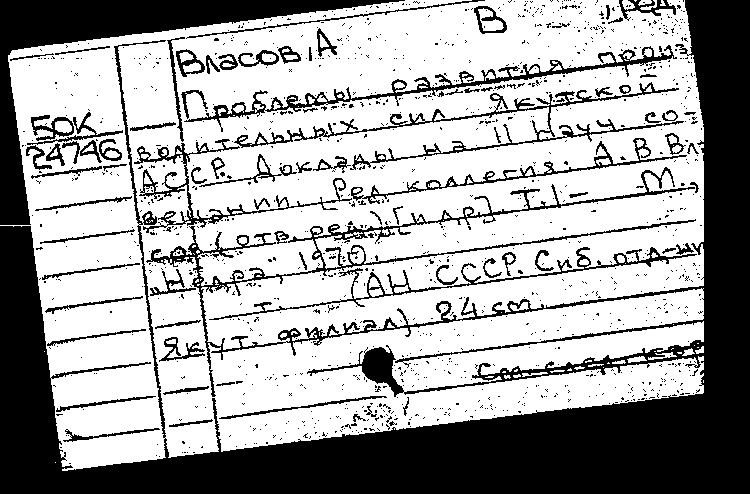 В , ред.
Власов, А
Проблемы развития произ
БОК
24746
водительных сил Якутской
АССР. Доклады на II Науч. со-
вещании. [Ред. коллегия: А. В. Вла
сов (отв. ред.) [и др.] Т. 1 – М.,
„Недра", 1970.
т. (АН СССР. Сиб. отд-ни
Якут. филиал) 24 cm.
См. след. кар